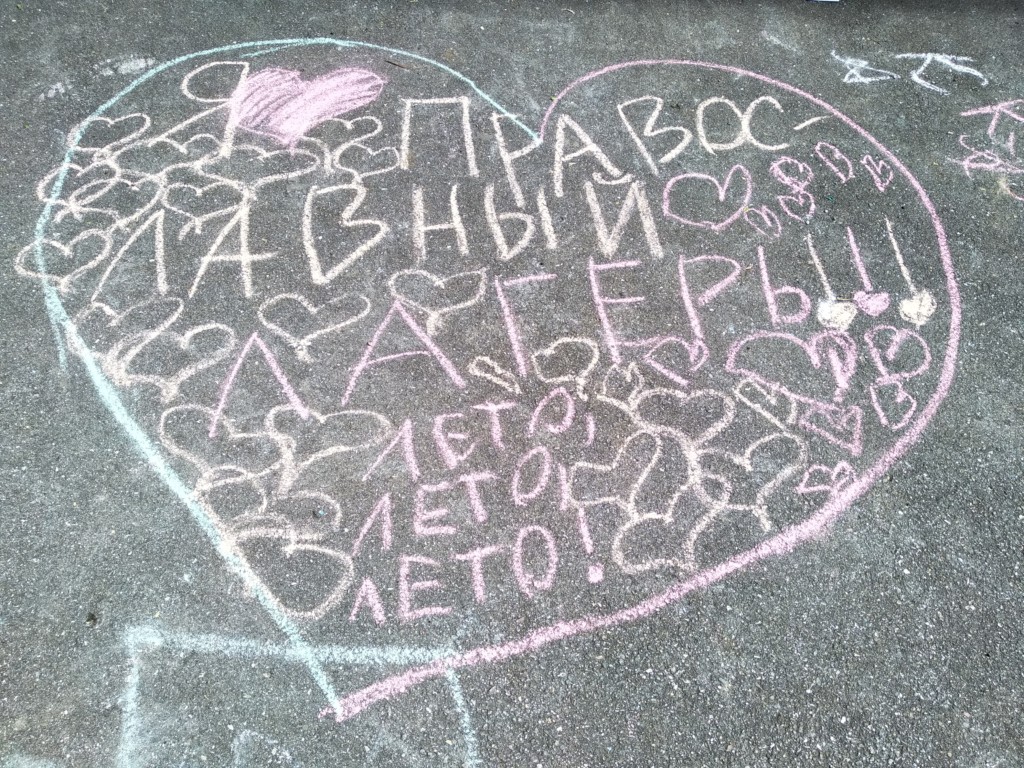 Я ПРАВОС-
ЛАВНЫЙ
ЛАГЕРЬ!!!
ЛЕТО,
ЛЕТО,
ЛЕТО!